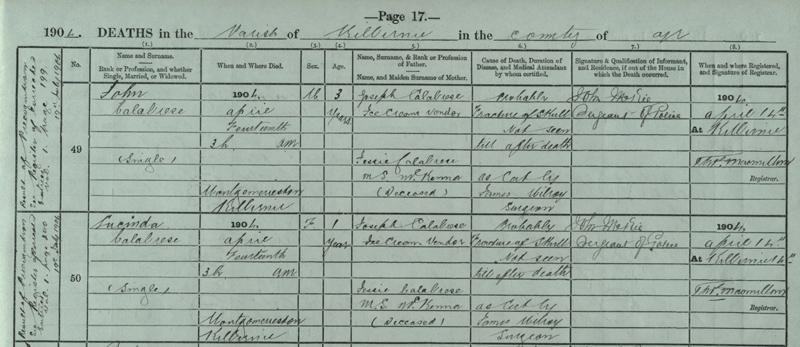 —Page 17.—
1904. DEATHS in the Parish of Kilbirnie in the County of Ayr
No.
(1.)
Name and Surname.
Rank or Profession, and whether
Single, Married, or Widowed.
(2.)
When and Where Died.
(3.)
Sex.
(4.)
Age.
(5.)
Name, Surname, & Rank or Profession
of Father.
Name, and Maiden Surname of Mother.
(6.)
Cause of Death, Duration of
Disease, and Medical Attendant
by whom certified.
(7.)
Signature & Qualification of Informant,
and Residence, if out of the House in
which the Death occurred.
(8.)
When and where Registered,
and Signature of Registrar.
49
John
Calabrese
(Single)
1904.
April
Fourteenth
3h am
Montgomerieston
Kilbirnie
M
3
Years
Joseph Calabrese
Ice Cream Vendor
Jessie Calabrese
M.S. McKenna
(Deceased)
Probably
Fracture of Skull
Not seen
till after death
as Cert by
James Milroy
Surgeon
John
Sergeant of Police
1904.
April 14th
At Kilbirnie
Thos. Macmillan
Registrar.
50
Lucinda
Calabrese
(Single)
1904.
April
Fourteenth
3h am
Montgomerieston
Kilbirnie
F
1
Year
Joseph Calabrese
Ice Cream Vendor
Jessie Calabrese
M.S. McKenna
(Deceased)
Probably
Fracture of Skull
Not seen
till after death
as Cert by
James Milroy
Surgeon
John
Sergeant of Police
1904.
April 14th
At Kilbirnie
Thos. Macmillan
Registrar.